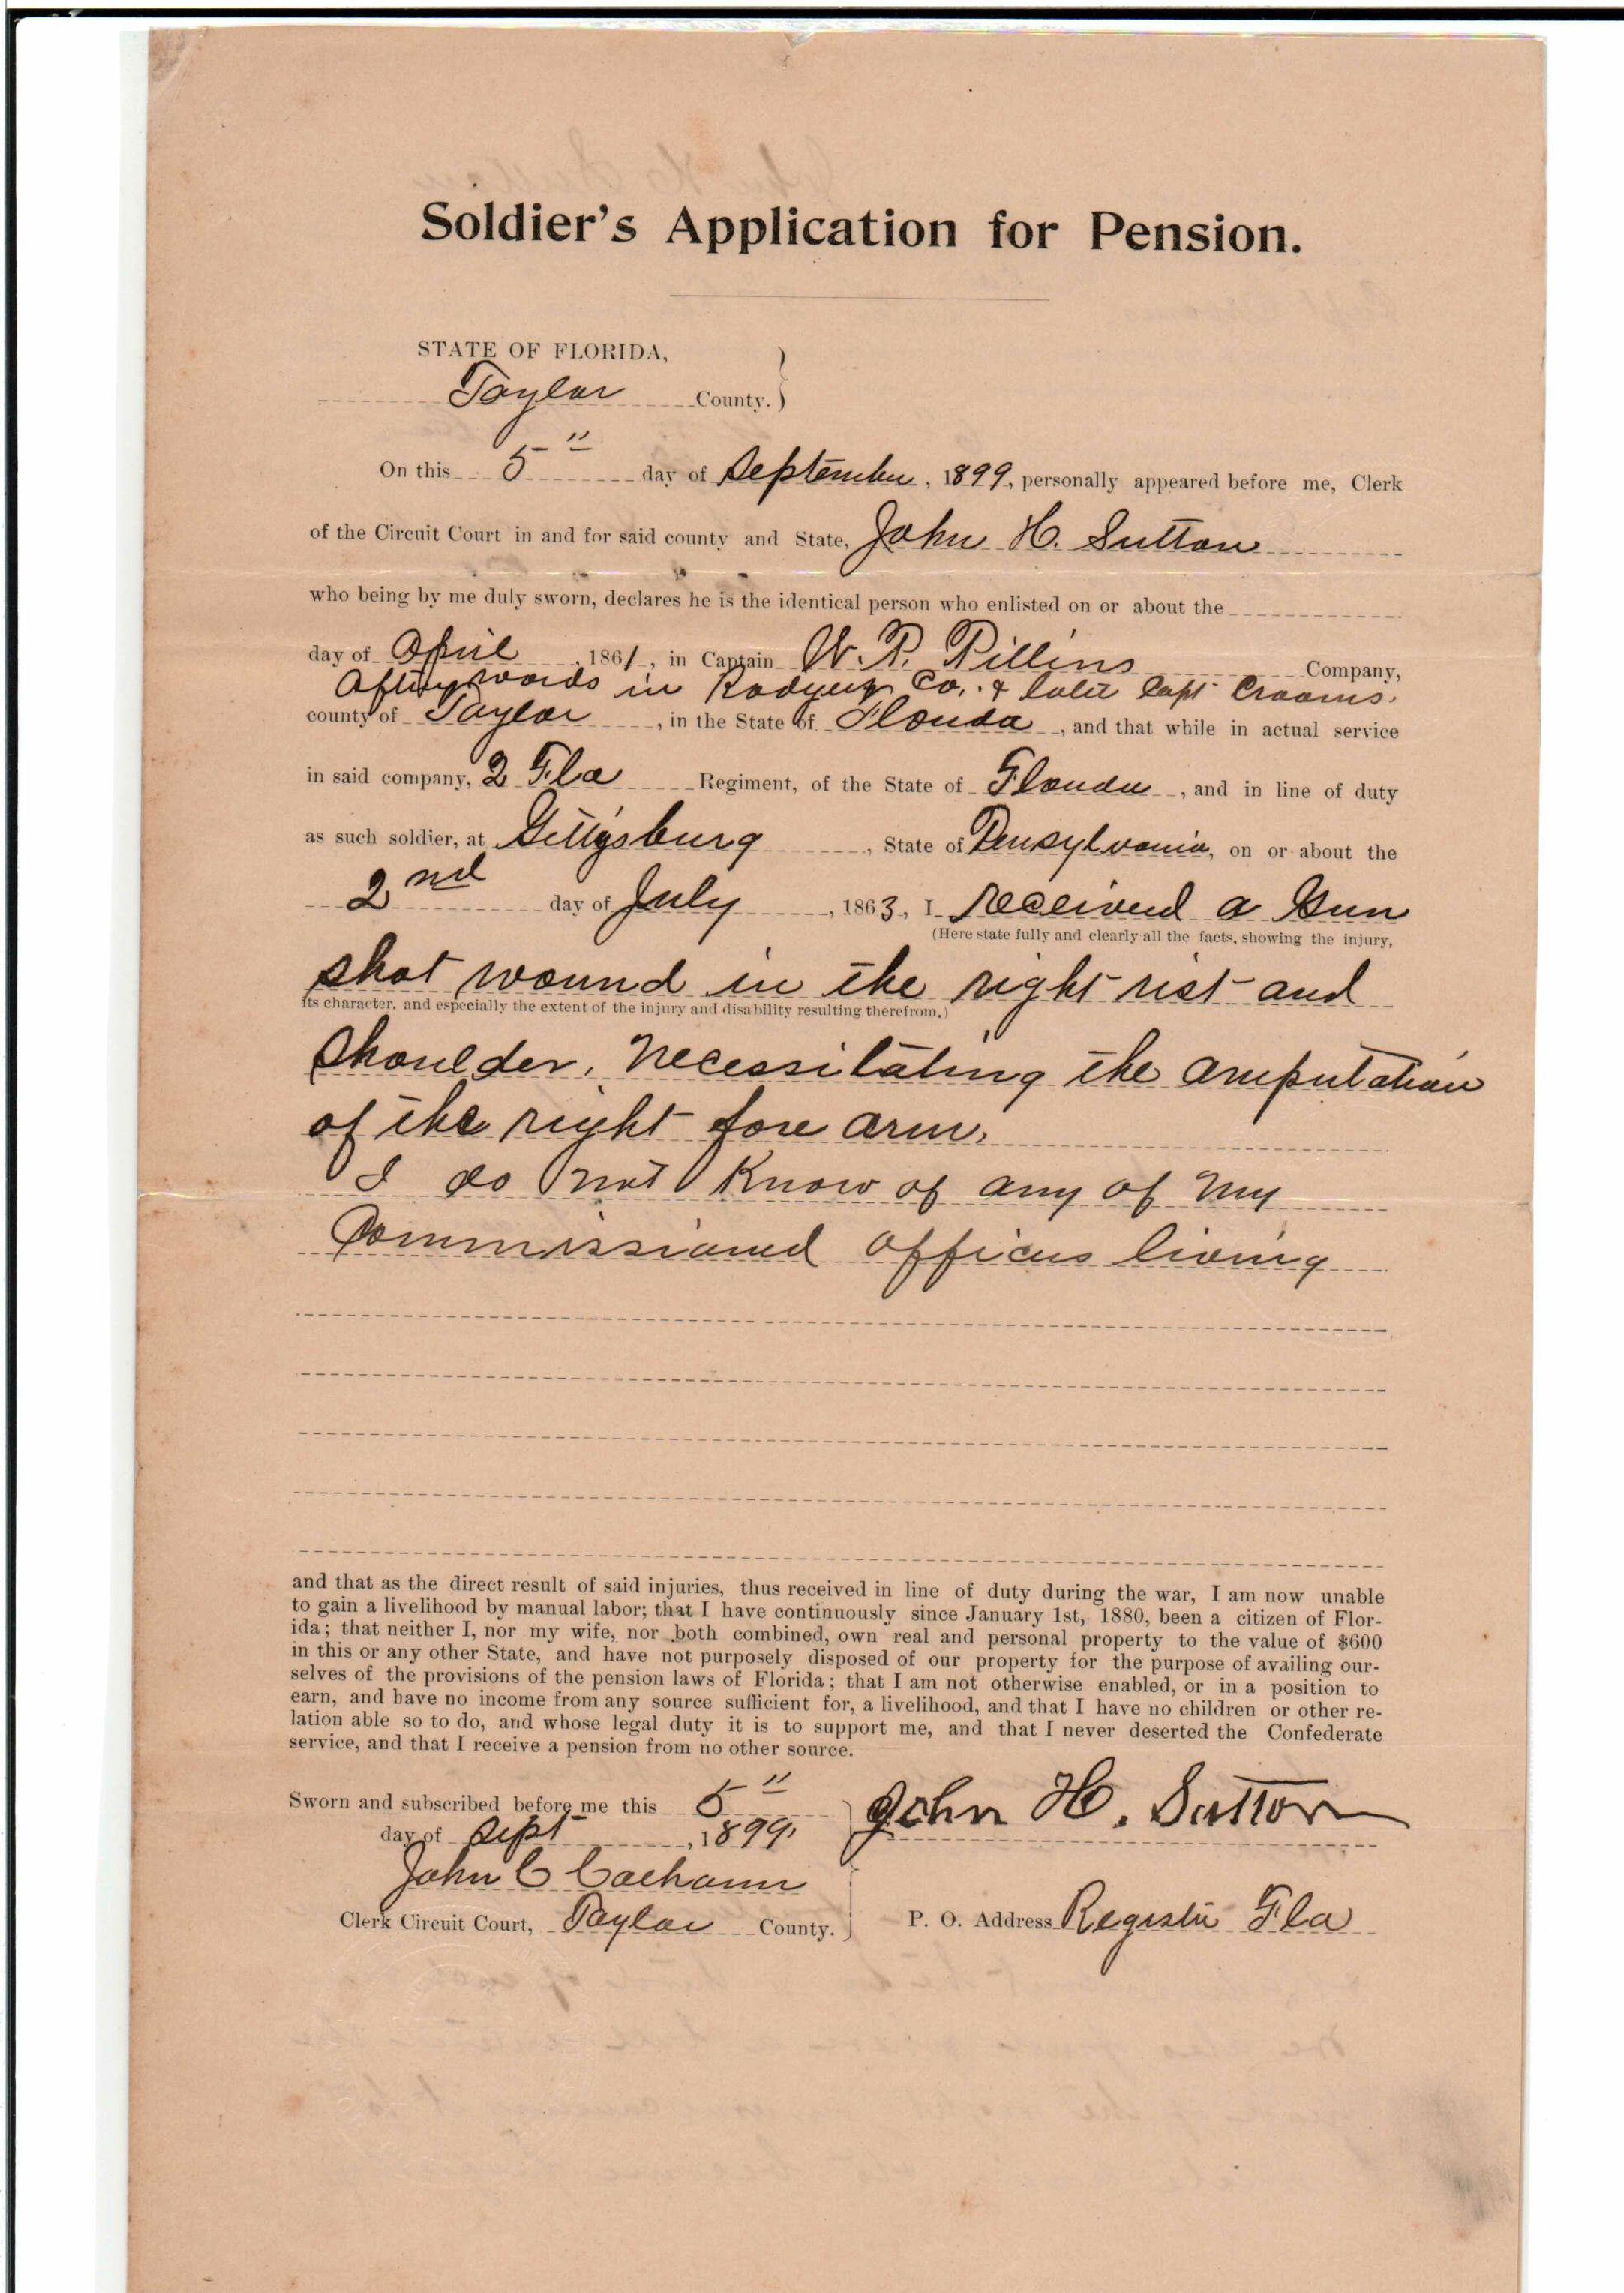 Soldier's Application for Pension.
STATE OF FLORIDA,
Taylor County.
On this 5" day of September, 1899, personally appeared before me, Clerk
of the Circuit Court in and for said county and State, John H. Sutton
who being by me duly sworn, declares he is the identical person who enlisted on or about the
day of April, 1861, in Captain W. P. Pillins Company,
Afterwords in Rodgers Co. & later Capt Crooms.
county of Taylor, in the State of Florida, and that while in actual service
in said company, 2 Fla Regiment, of the State of Florida, and in line of duty
as such soldier, at Gettysburg, State of Pensylvania, on or about the
2nd day of July, 1863, I received a Gun
(Here state fully and clearly all the facts, showing the injury,
shot wound in the right rist and
its character, and especially the extent of the injury and disability resulting therefrom.)
Shoulder, necessitating the amputation
of the right fore arm.
I do not Know of any of my
Commissioned officers living
and that as the direct result of said injuries, thus received in line of duty during the war, I am now unable
to gain a livelihood by manual labor; that I have continuously since January 1st, 1880, been a citizen of Flor-
ida; that neither I, nor my wife, nor both combined, own real and personal property to the value of $600
in this or any other State, and have not purposely disposed of our property for the purpose of availing our-
selves of the provisions of the pension laws of Florida; that I am not otherwise enabled, or in a position to
earn, and have no income from any source sufficient for, a livelihood, and that I have no children or other re-
lation able so to do, and whose legal duty it is to support me, and that I never deserted the Confederate
service, and that I receive a pension from no other source.
Sworn and subscribed before me this 5"
day of Sept, 1899.
John H. Sutton
John C Calhoun
Clerk Circuit Court, Taylor County.
P. O. Address Register Fla